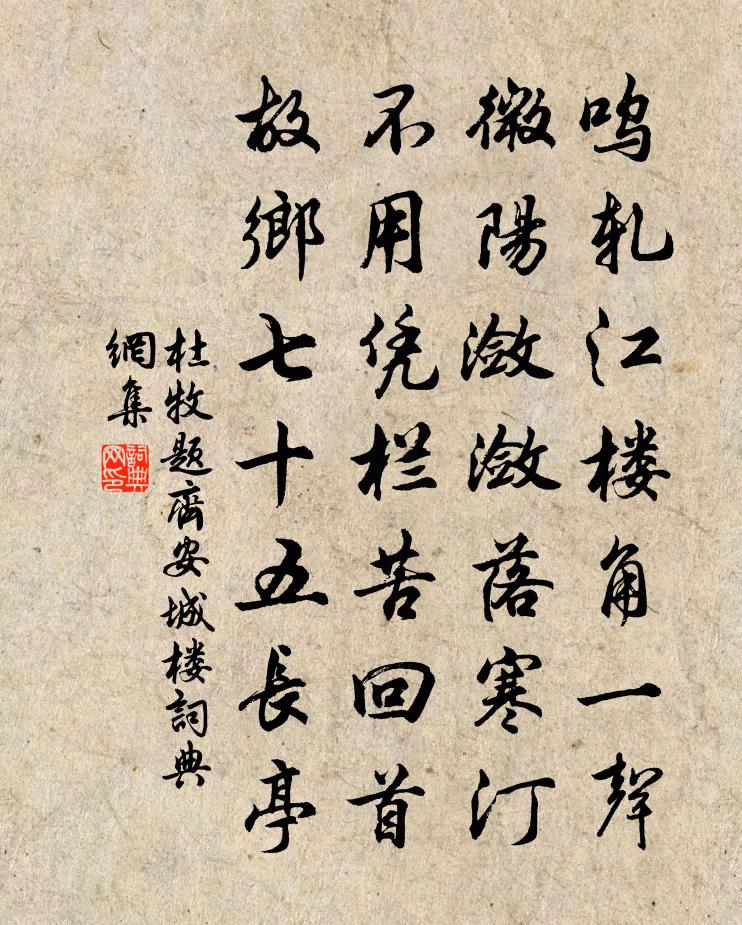 鸣轧江楼角一声
微陽潋潋落寒汀
不用凭栏苦回首
故鄉七十五長亭
杜牧题齊安城楼詞典
網集
詞典网印